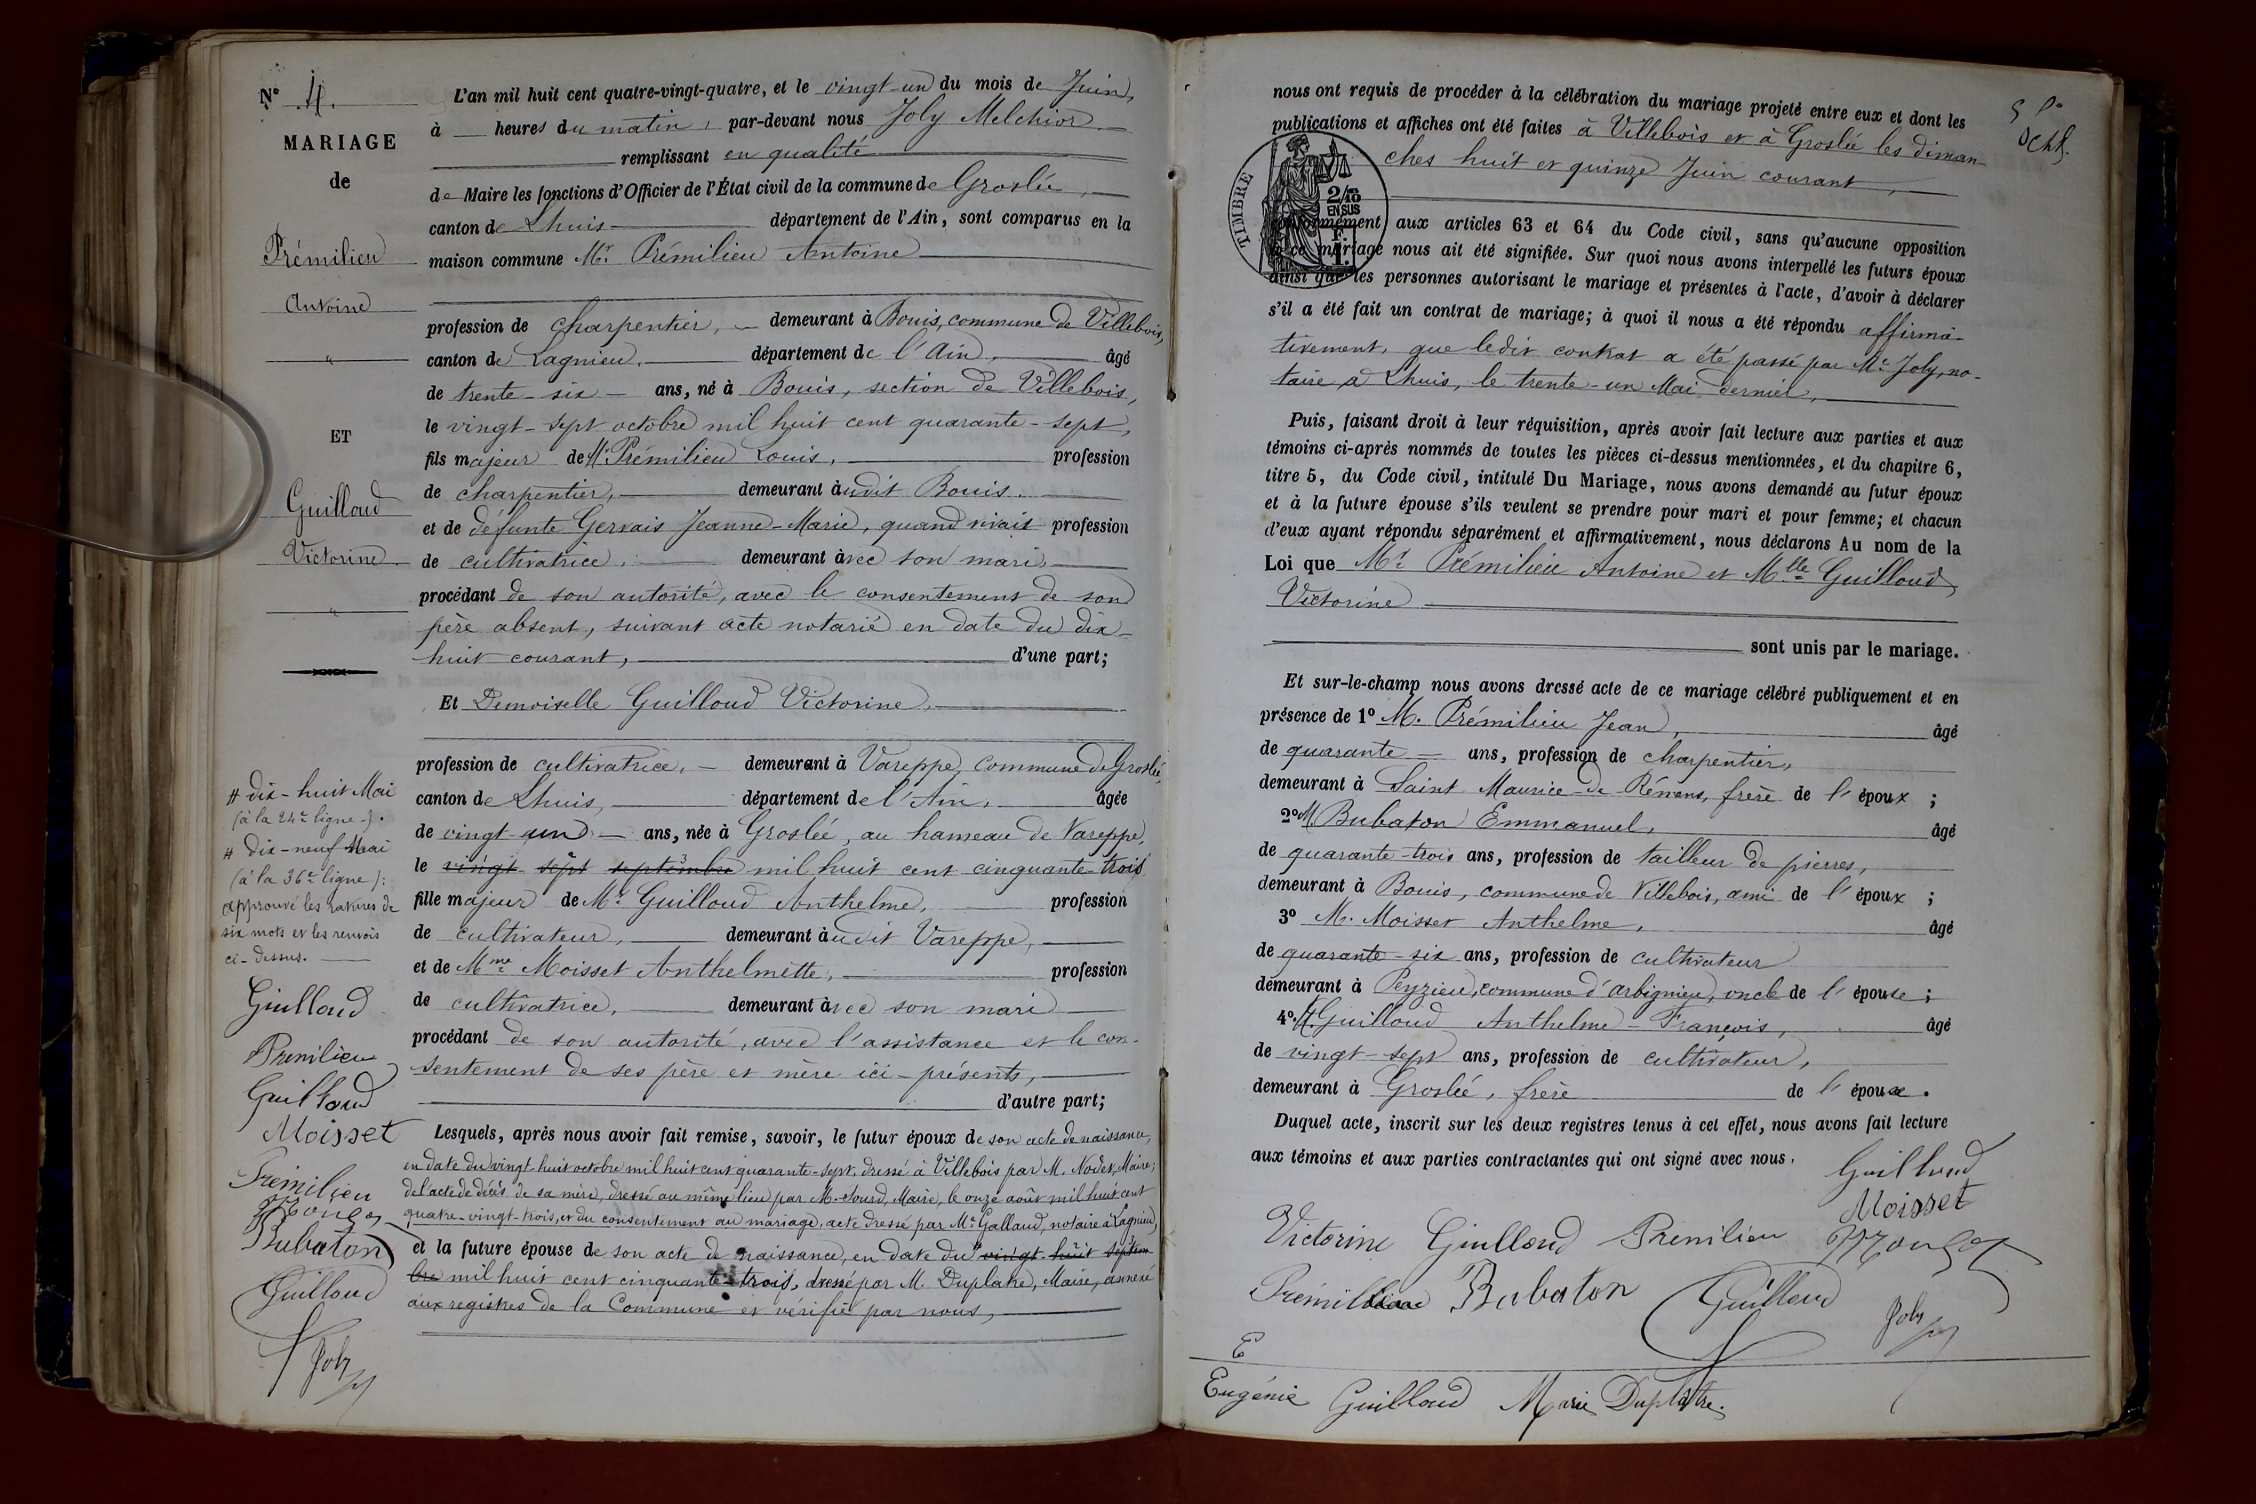 N° 4.
MARIAGE
de
Prémilieu
Antoine
"
ET
Guilloud
Victorine
"
# dix-huit Mai
(à la 24e ligne).
# dix-neuf Mai
(à la 36e ligne):
approuvé les ratures de
six mots et les renvois
ci-dessus.
Guilloud
Premilieu
Guilloud
Moisset
Prémilieu
Bubaton
Guilloud
Joly
L'an mil huit cent quatre-vingt-quatre, et le vingt-un du mois de Juin,
à heures du matin, par-devant nous Joly Melchior
remplissant en qualité
de Maire les fonctions d'Officier de l'État civil de la commune de Groslée,
canton de Lhuis département de l'Ain, sont comparus en la
maison commune Mr. Prémilieu Antoine
profession de charpentier, demeurant à Bouis, commune de Villebois,
canton de Lagnieu, département de l'Ain, âgé
de trente-six ans, né à Bouis, section de Villebois,
le vingt-sept octobre mil huit cent quarante-sept,
fils majeur de Mr Prémilieu Louis, profession
de charpentier, demeurant audit Bouis.
et de défunte Gervais Jeanne-Marie, quand vivait profession
de cultivatrice, demeurant avec son mari,
procédant de son autorité, avec le consentement de son
père absent, suivant acte notarié en date du dix-
huit courant, d'une part;
Et Demoiselle Guilloud Victorine,
profession de cultivatrice, demeurant à Vareppe, commune de Groslée,
canton de Lhuis, département de l'Ain, âgée
de vingt-un ans, née à Groslée, au hameau de Vareppe,
le vingt-sept septembre mil huit cent cinquante-trois
fille majeur de Mr. Guilloud Anthelme, profession
de cultivateur, demeurant audit Vareppe,
et de Mme Moisset Anthelmette, profession
de cultivatrice, demeurant avec son mari
procédant de son autorité, avec l'assistance et le con-
sentement de ses père et mère ici-présents,
d'autre part;
Lesquels, après nous avoir fait remise, savoir, le futur époux de son acte de naissance,
en date du vingt-huit octobre mil huit cent quarante-sept, dressé à Villebois par M. Nodet, Maire;
de l'acte de décès de sa mère, dressé au même lieu par M. Sourd, Maire, le onze août mil huit cent
quatre-vingt-trois, et du consentement au mariage, acte dressé par Me Gallaud, notaire à Lagnieu,
et la future épouse de son acte de naissance, en date du # vingt-huit septem
bre mil huit cent cinquante-trois, dressé par M. Duplatre, Maire, annexé
aux registres de la Commune et vérifié par nous,
nous ont requis de procéder à la célébration du mariage projeté entre eux et dont les
publications et affiches ont été faites à Villebois et à Groslée les diman-
ches huit et quinze Juin courant,
TIMBRE
2/10
EN SUS
F.
1.
conformément aux articles 63 et 64 du Code civil, sans qu'aucune opposition
à ce mariage nous ait été signifiée. Sur quoi nous avons interpellé les futurs époux
ainsi que les personnes autorisant le mariage et présentes à l'acte, d'avoir à déclarer
s'il a été fait un contrat de mariage; à quoi il nous a été répondu affirma-
tivement, que ledit contrat a été passé par Me Joly, no-
taire à Lhuis, le trente-un Mai dernier,
Puis, faisant droit à leur réquisition, après avoir fait lecture aux parties et aux
témoins ci-après nommés de toutes les pièces ci-dessus mentionnées, et du chapitre 6,
titre 5, du Code civil, intitulé Du Mariage, nous avons demandé au futur époux
et à la future épouse s'ils veulent se prendre pour mari et pour femme; et chacun
d'eux ayant répondu séparément et affirmativement, nous déclarons Au nom de la
Loi que Mr. Prémilieu Antoine et Mlle Guilloud
Victorine
sont unis par le mariage.
Et sur-le-champ nous avons dressé acte de ce mariage célébré publiquement et en
présence de 1° M. Prémilieu Jean, âgé
de quarante ans, profession de charpentier,
demeurant à Saint Maurice-de Rémens, frère de l'époux;
2° M. Bubaton Emmanuel, âgé
de quarante-trois ans, profession de tailleur de pierres,
demeurant à Bouis, commune de Villebois, ami de l'époux;
3° M. Moisset Anthelme, âgé
de quarante-six ans, profession de cultivateur
demeurant à Peyzieu, commune d'arbignieu, oncle de l'épouse;
4° M. Guilloud Anthelme-François, âgé
de vingt-sept ans, profession de cultivateur,
demeurant à Groslée, frère de l'épouse.
Duquel acte, inscrit sur les deux registres tenus à cet effet, nous avons fait lecture
aux témoins et aux parties contractantes qui ont signé avec nous.
Guilloud
Moisset
Victorine Guilloud Premilieu
Prémilieu Bubaton Guilloud Joly
E
Eugénie Guilloud Marie Duplatre.